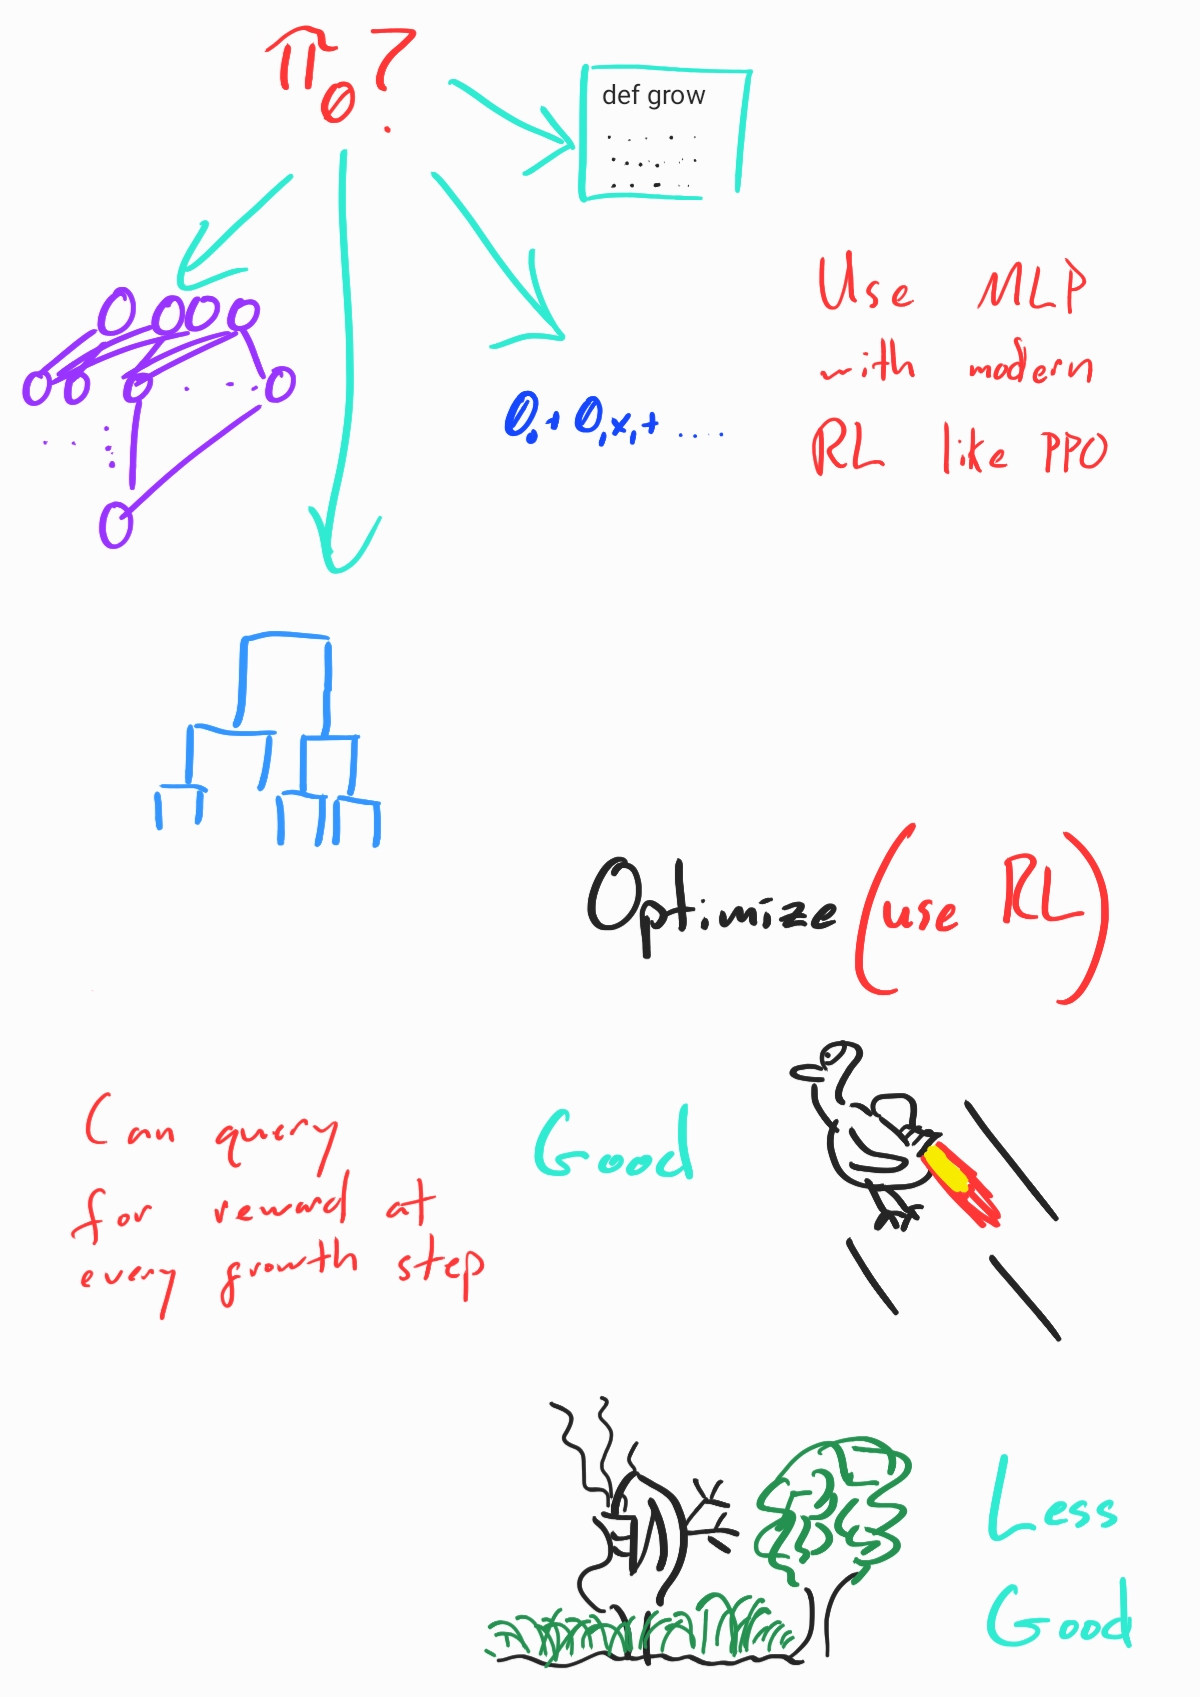 π₀?
def grow
Use MLP
with modern
RL like PPO
θ₀ + θ₁x₁ + ....
Optimize (use RL)
Can query
for reward at
every growth step
Good
Less
Good